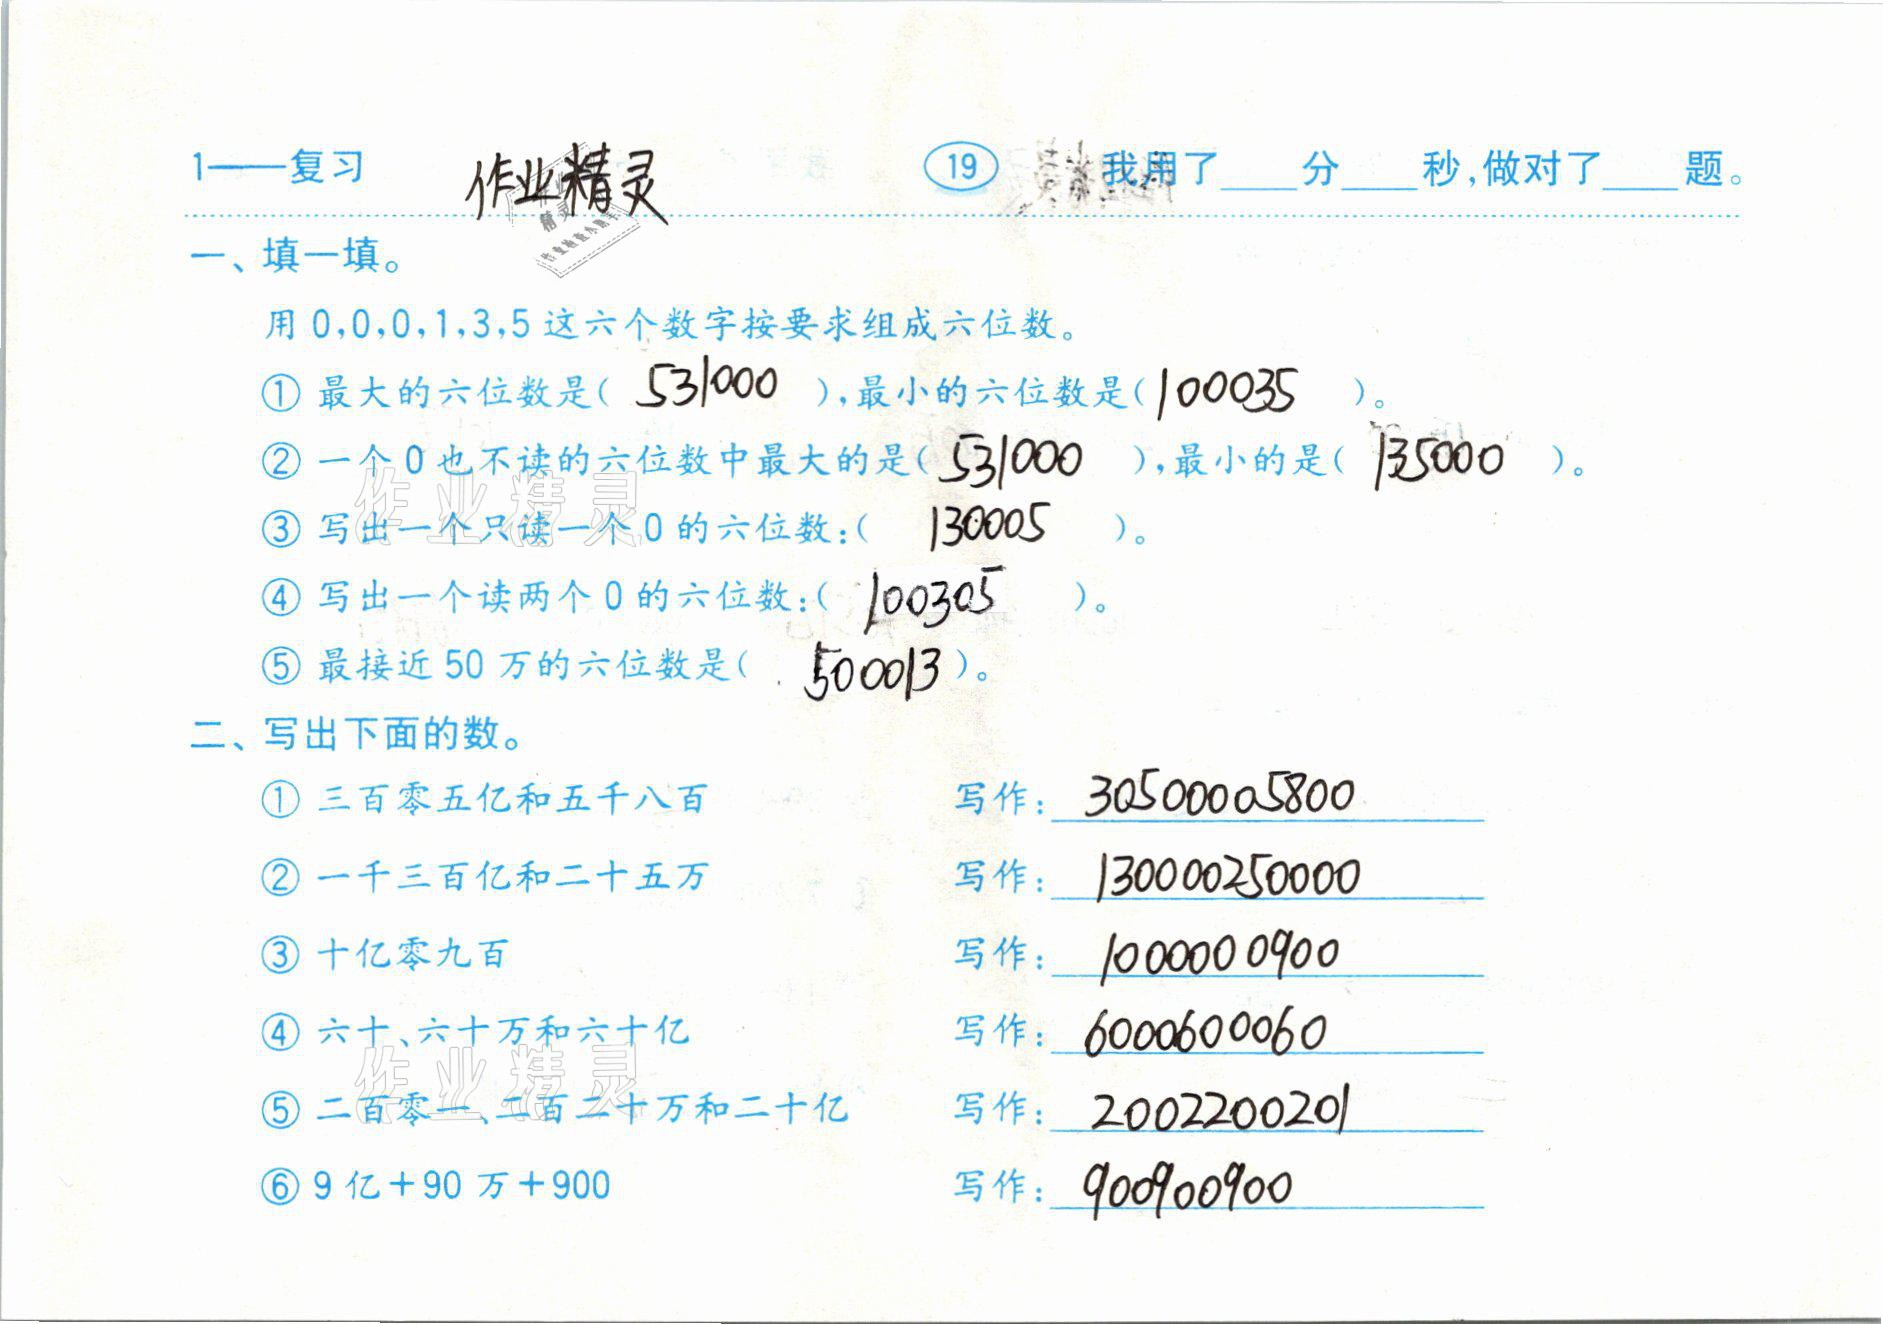 1——复习 作业精灵 19 我用了____分____秒,做对了____题。
一、填一填。
用0,0,0,1,3,5这六个数字按要求组成六位数。
① 最大的六位数是( 531000 ),最小的六位数是( 100035 )。
② 一个0也不读的六位数中最大的是( 531000 ),最小的是( 135000 )。
③ 写出一个只读一个0的六位数:( 130005 )。
④ 写出一个读两个0的六位数:( 100305 )。
⑤ 最接近50万的六位数是( 500013 )。
二、写出下面的数。
① 三百零五亿和五千八百 写作: 30500005800
② 一千三百亿和二十五万 写作: 130000250000
③ 十亿零九百 写作: 1000000900
④ 六十、六十万和六十亿 写作: 6000600060
⑤ 二百零一、二百二十万和二十亿 写作: 2002200201
⑥ 9亿+90万+900 写作: 900900900
作业精灵
作业精灵